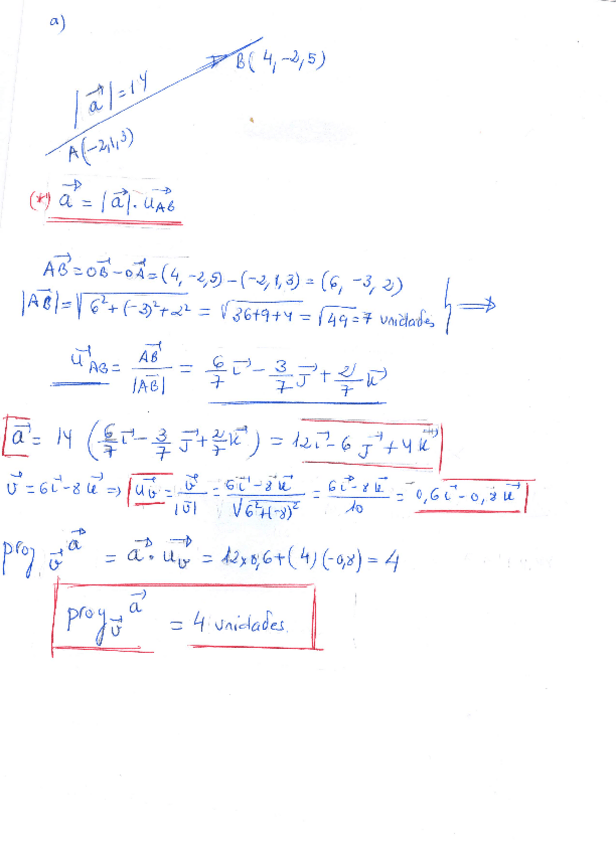 a)
B(4, -2, 5)
|a⃗| = 14
A(-2, 1, 3)
(*) a⃗ = |a⃗| · u⃗AB
AB⃗ = OB⃗ - OA⃗ = (4, -2, 5) - (-2, 1, 3) = (6, -3, 2)
|AB⃗| = √(6² + (-3)² + 2²) = √(36+9+4) = √49 = 7 unidades } ⟹
u⃗AB = AB⃗/|AB⃗| = 6/7 i⃗ - 3/7 J⃗ + 2/7 k⃗
a⃗ = 14 (6/7 i⃗ - 3/7 J⃗ + 2/7 k⃗) = 12i⃗ - 6J⃗ + 4k⃗
v⃗ = 6i⃗ - 8k⃗ ⇒ u⃗v = v⃗/|v⃗| = 6i⃗ - 8k⃗/√(6²+(-8)²) = 6i⃗ - 8k⃗/10 = 0,6i⃗ - 0,8k⃗
proy v⃗ a⃗ = a⃗ · u⃗v = 12x0,6 + (4)(-0,8) = 4
proy v⃗ a⃗ = 4 unidades.